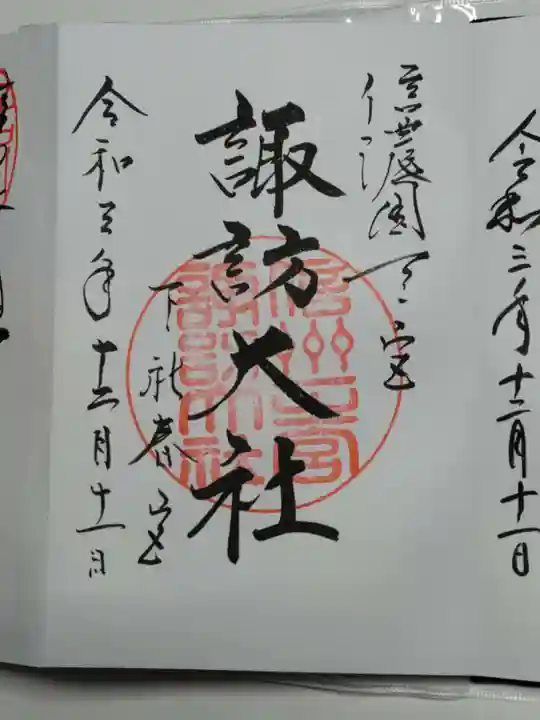 令和三年十二月十一日
信濃國一之宮
諏訪大社
下社春宮
令和三年十二月十一日